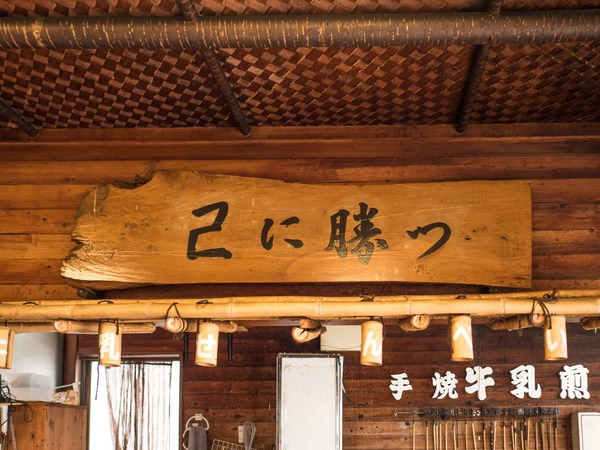 己に勝つ
乳せんべい
手焼牛乳煎